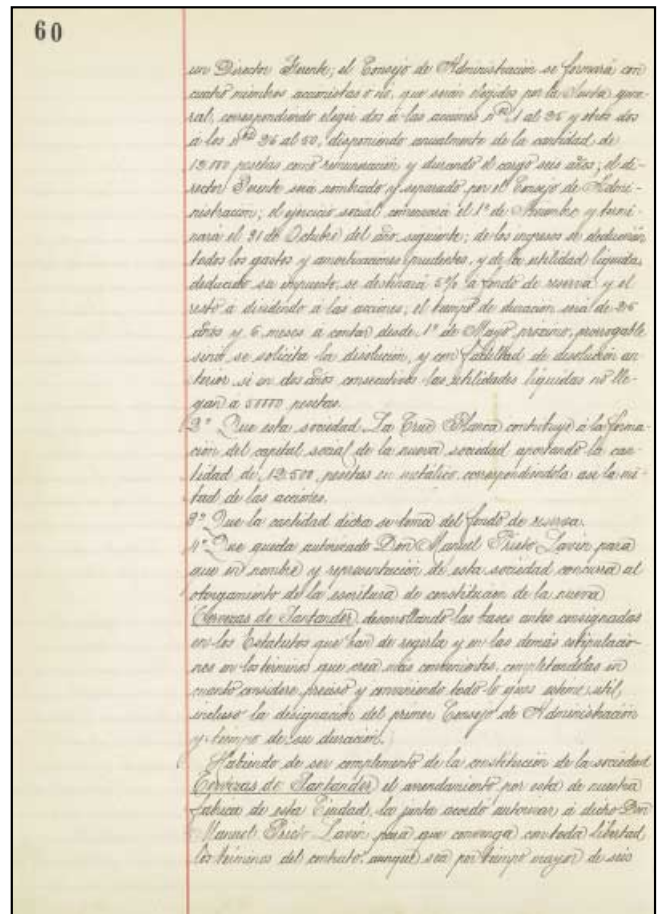 60
un Director Gerente; el Consejo de Administración se formará con
cuatro miembros accionistas o no, que serán elegidos por la Junta gene-
ral, correspondiendo elegir dos á las acciones nos 1 al 25 y otros dos
á los nos 26 al 50, disponiendo anualmente de la cantidad de
12.000 pesetas como remuneración y durando el cargo seis años; el di-
rector Gerente será nombrado y separado por el Consejo de Admi-
nistración; el ejercicio social comenzará el 1º de Noviembre y termi-
nará el 31 de Octubre del año siguiente; de los ingresos se deducirán
todos los gastos y amortizaciones prudentes, y de la utilidad líquida,
deducido su impuesto, se destinará 5% a fondo de reserva y el
resto á dividendo á las acciones; el tiempo de duración será de 25
años y 6 meses a contar desde 1º de Mayo próximo, prorrogable
si no se solicita la disolución, y con facultad de disolución an-
terior si en dos años consecutivos las utilidades líquidas no lle-
gan a 50000 pesetas.
2º Que esta sociedad La Cruz Blanca contribuye á la forma-
ción del capital social de la nueva sociedad aportando la can-
tidad de 12.500 pesetas en metálico, correspondiéndola así la mi-
tad de las acciones.
3º Que la cantidad dicha se toma del fondo de reserva.
4º Que queda autorizado Don Manuel Prieto Lavín para
que en nombre y representación de esta sociedad concurra al
otorgamiento de la escritura de constitución de la nueva
Cervezas de Santander, desarrollando las bases antes consignadas
en los Estatutos que han de regirla y en las demás estipulacio-
nes en los términos que crea más convenientes, completándolas en
cuanto considere preciso y conviniendo todo lo que estime útil,
incluso la designación del primer Consejo de Administración
y tiempo de su duración.
Habiendo de ser complemento de la constitución de la sociedad
Cervezas de Santander el arrendamiento por esta de nuestra
fábrica de esta Ciudad, la junta acordó autorizar á dicho Don
Manuel Prieto Lavín para que convenga con toda libertad
los términos del contrato, aunque sea por tiempo mayor de seis